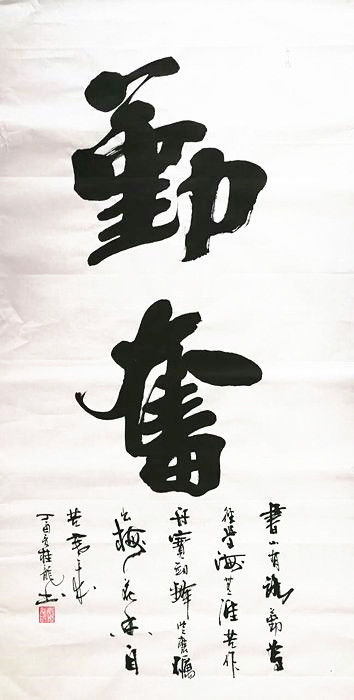 勤奮
書山有路勤為
徑學海無涯苦作
舟寶劍鋒從磨礪
出梅花香自
苦寒来
丁酉冬桂龍书